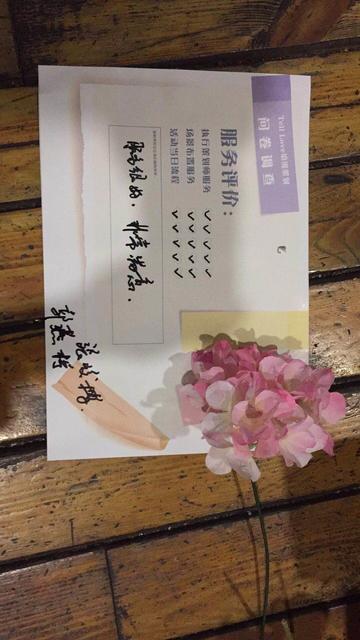 Tell Love婚礼策划
问卷调查
服务评价：
执行策划师服务 ✓✓✓✓✓
场景布置服务 ✓✓✓✓✓
活动当日流程 ✓✓✓✓✓
服务很好，非常满意．